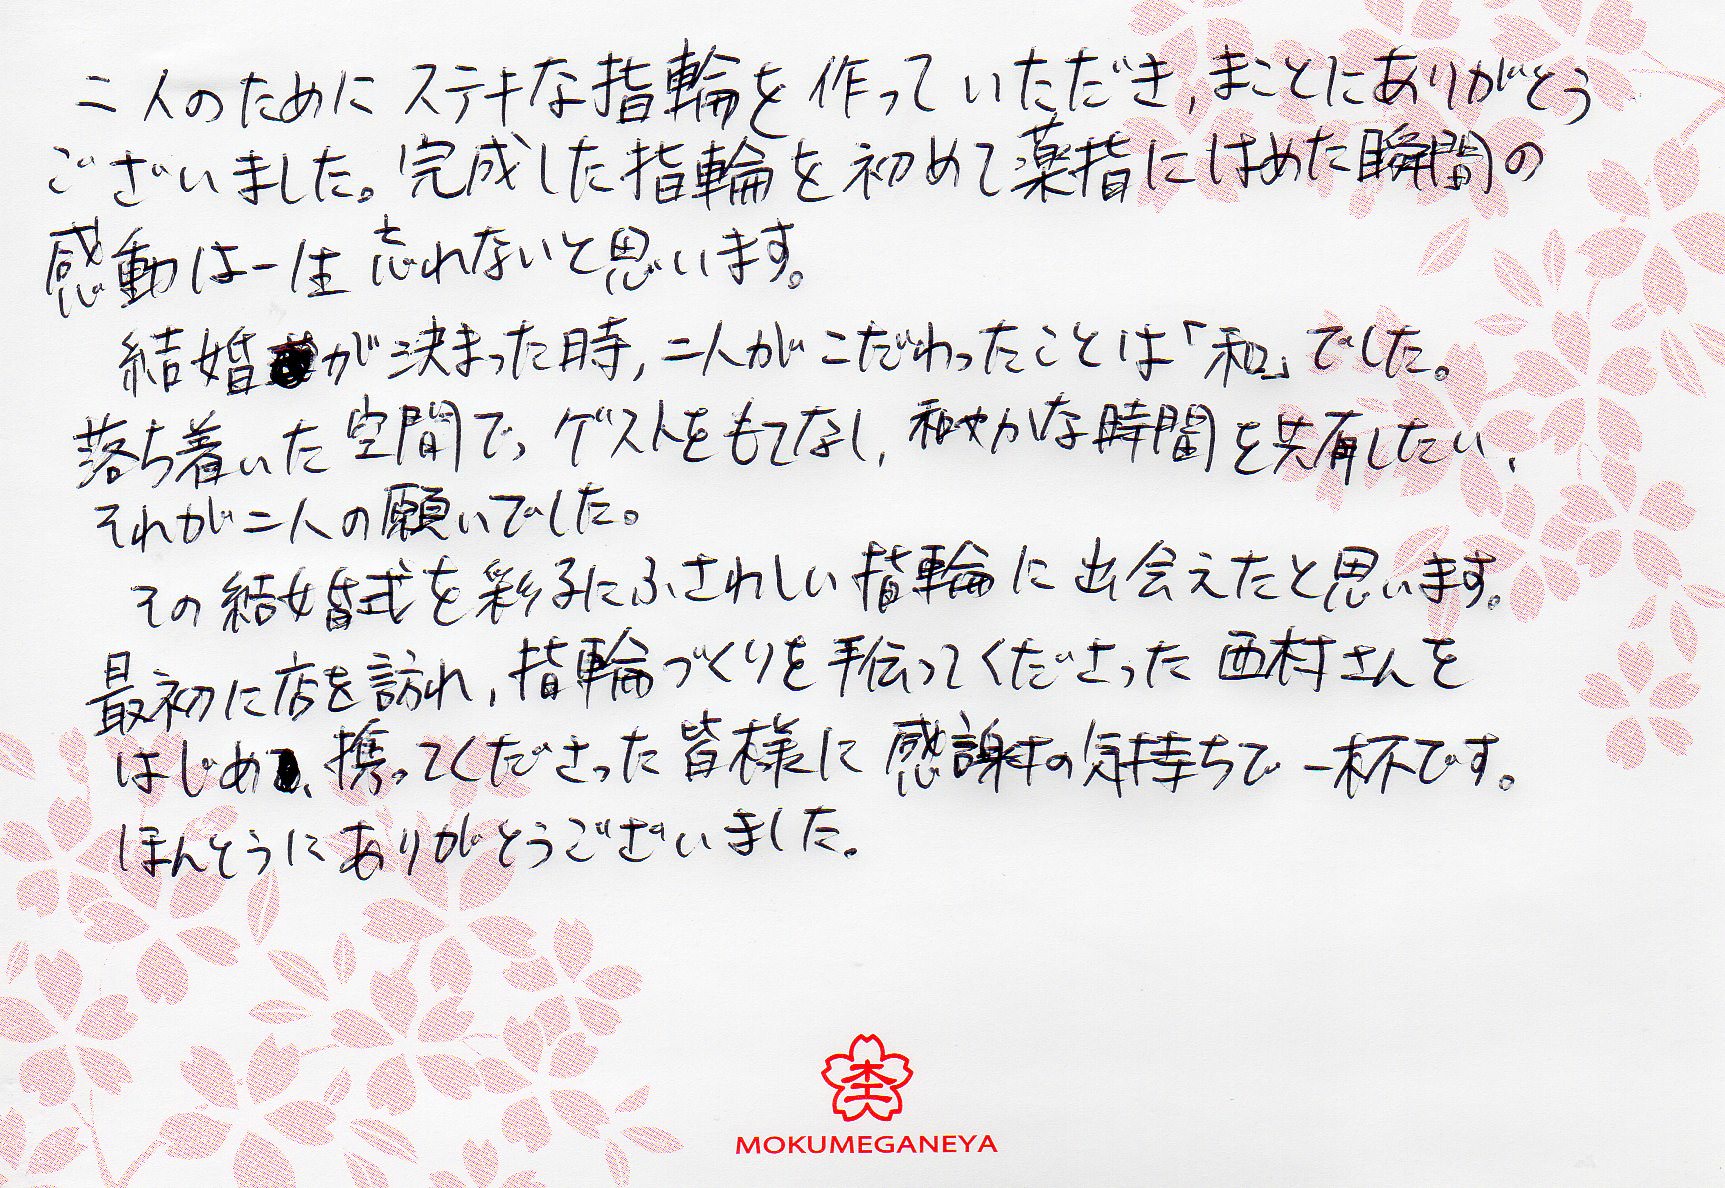 二人のために ステキな指輪を作っていただき、まことにありがとう
ございました。完成した指輪を初めて薬指にはめた瞬間の
感動は一生忘れないと思います。
結婚が決まった時、二人がこだわったことは「和」でした。
落ち着いた空間で、ゲストをもてなし、和やかな時間を共有したい、
それが二人の願いでした。
その結婚式を彩るにふさわしい指輪に出会えたと思います。
最初に店を訪れ、指輪づくりを手伝ってくださった西村さんを
はじめ、携ってくださった皆様に感謝の気持ちで一杯です。
ほんとうにありがとうございました。
杢
MOKUMEGANEYA